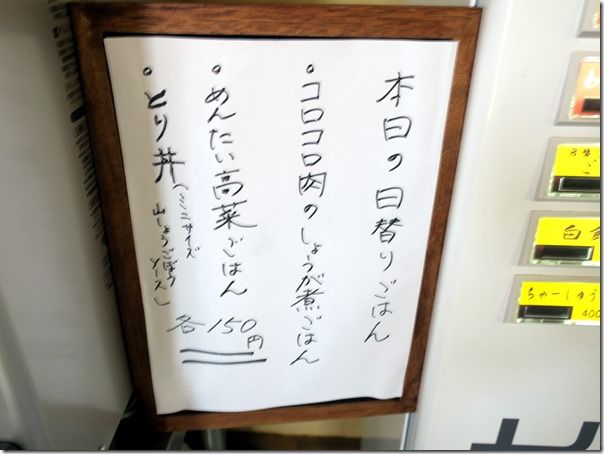 本日の日替りごはん
・コロコロ肉のしょうが煮ごはん
・めんたい高菜ごはん
・とり丼(ミニサイズ
山しょうごぼう
ソース)
各150円
白飯
ちゃーしゅう
400